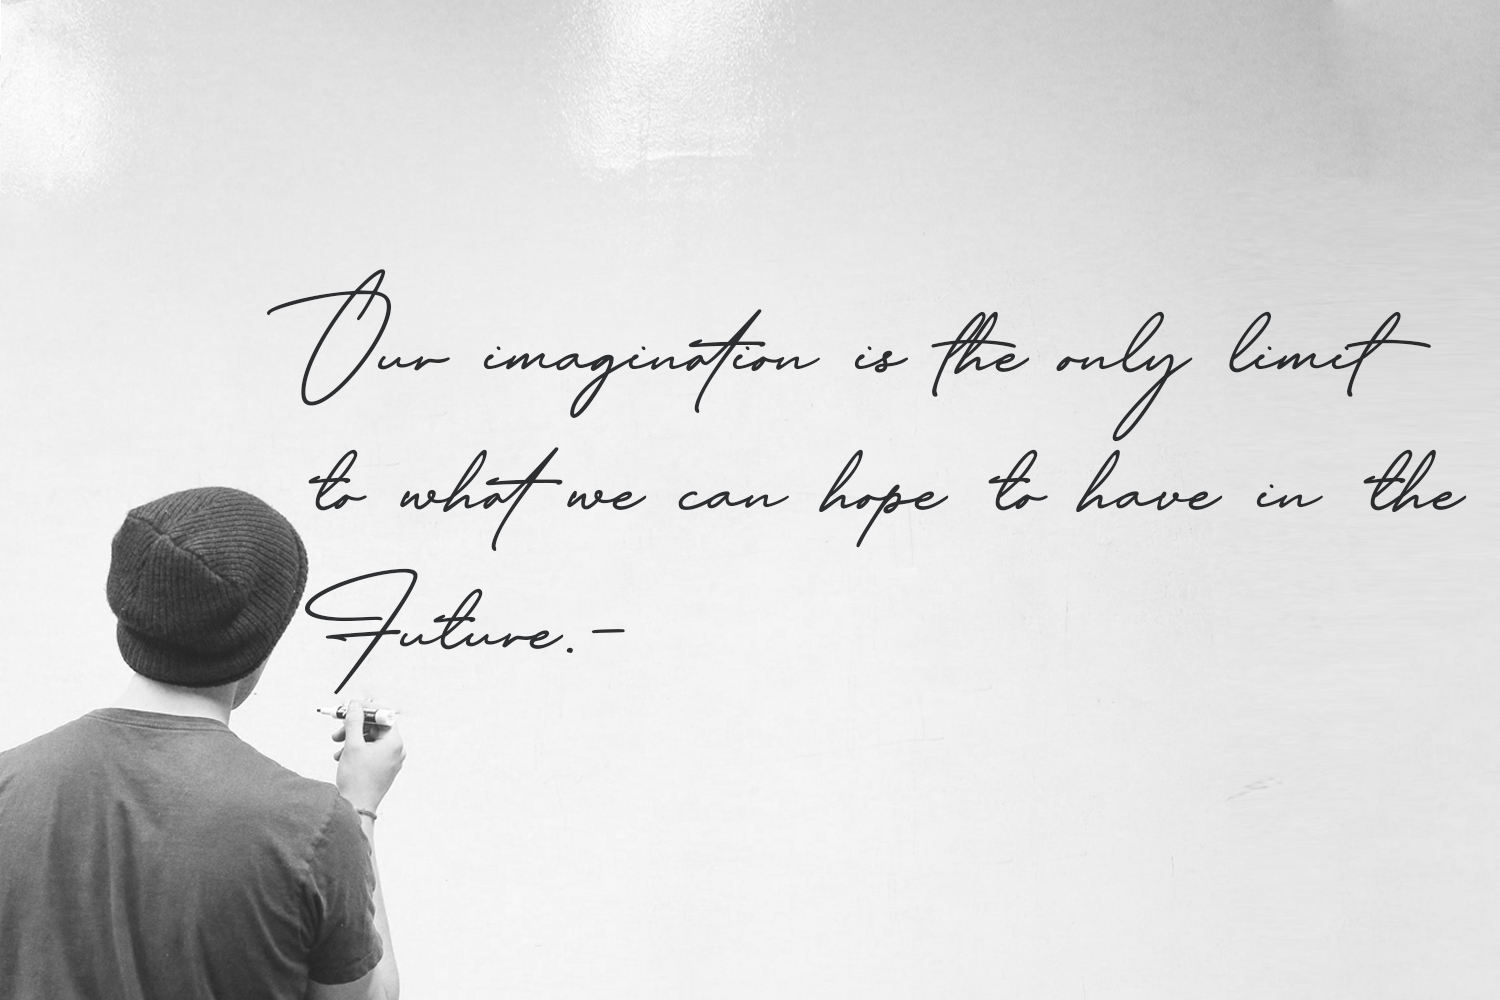 Our imagination is the only limit
to what we can hope to have in the
Future.-